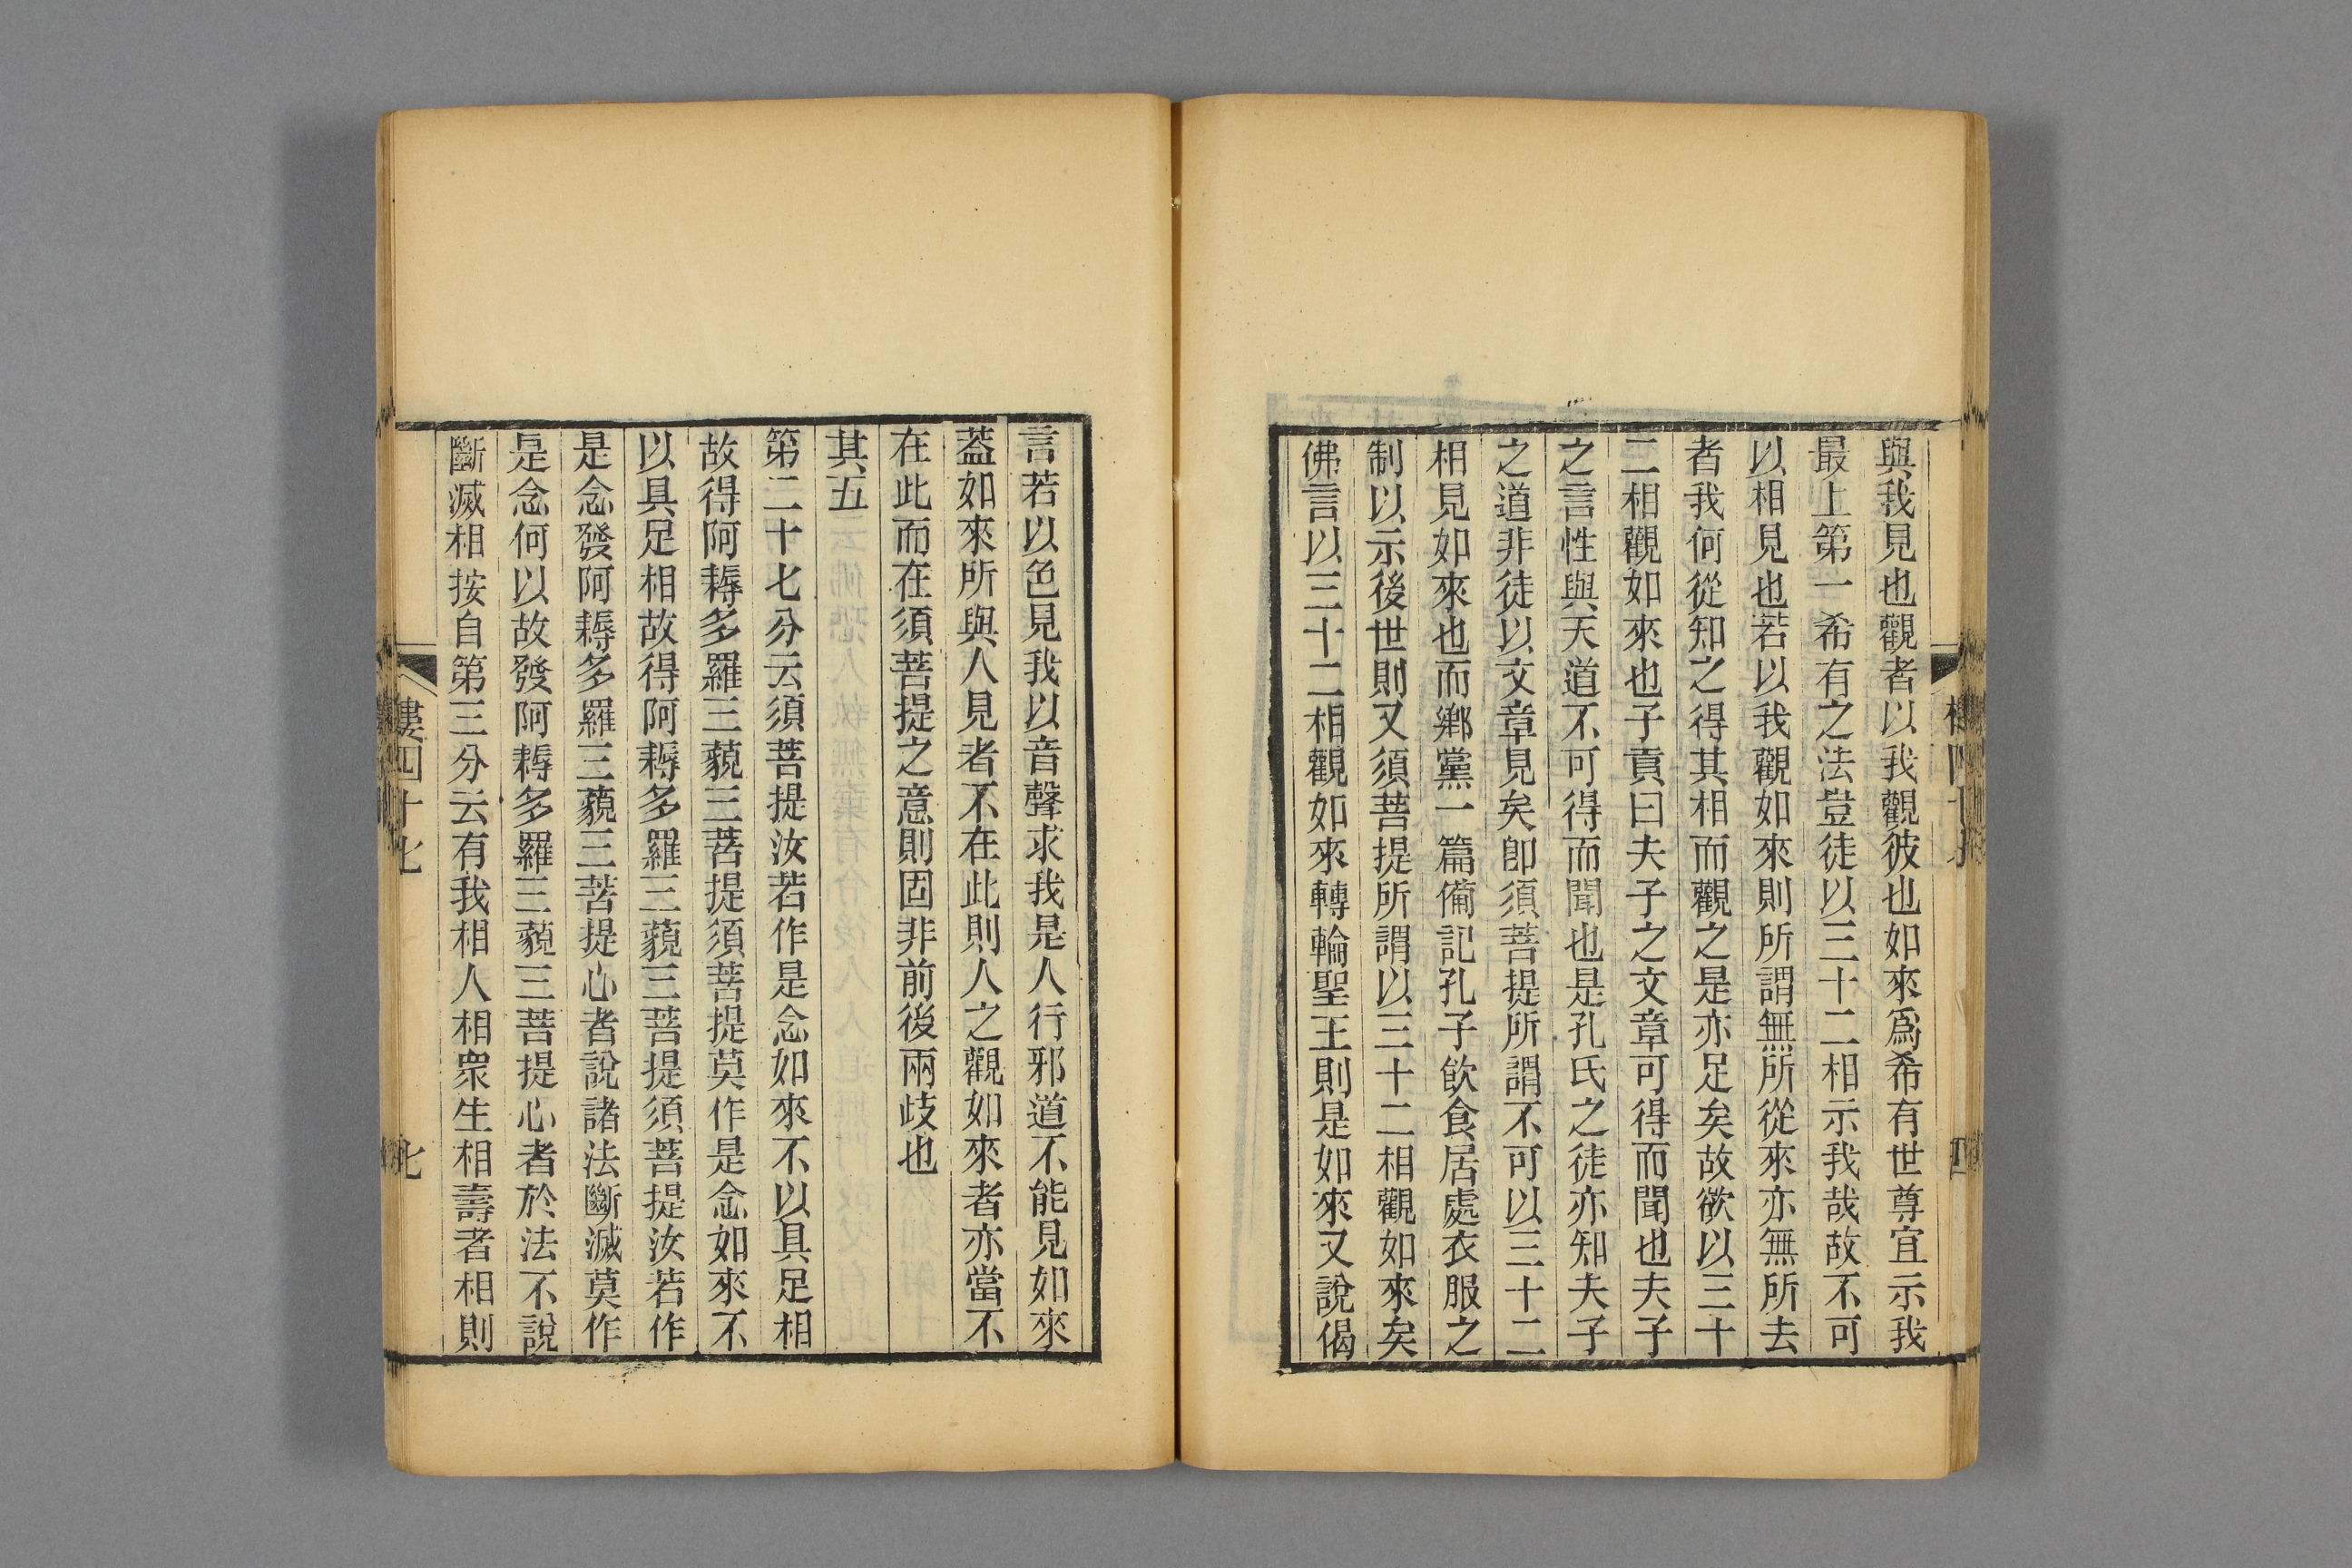 與我見也觀者以我觀彼也如來爲希有世尊宜示我
最上第一希有之法豈徒以三十二相示我哉故不可
以相見也若以我觀如來則所謂無所從來亦無所去
者我何從知之得其相而觀之是亦足矣故欲以三十
二相觀如來也子貢曰夫子之文章可得而聞也夫子
之言性與天道不可得而聞也是孔氏之徒亦知夫子
之道非徒以文章見矣卽須菩提所謂不可以三十二
相見如來也而鄉黨一篇備記孔子飲食居處衣服之
制以示後世則又須菩提所謂以三十二相觀如來矣
佛言以三十二相觀如來轉輪聖王則是如來又說偈
言若以色見我以音聲求我是人行邪道不能見如來
葢如來所與人見者不在此則人之觀如來者亦當不
在此而在須菩提之意則固非前後兩歧也
其五
第二十七分云須菩提汝若作是念如來不以具足相
故得阿耨多羅三藐三菩提須菩提莫作是念如來不
以具足相故得阿耨多羅三藐三菩提須菩提汝若作
是念發阿耨多羅三藐三菩提心者說諸法斷滅莫作
是念何以故發阿耨多羅三藐三菩提心者於法不說
斷滅相按自第三分云有我相人相衆生相壽者相則
樓四十七
七